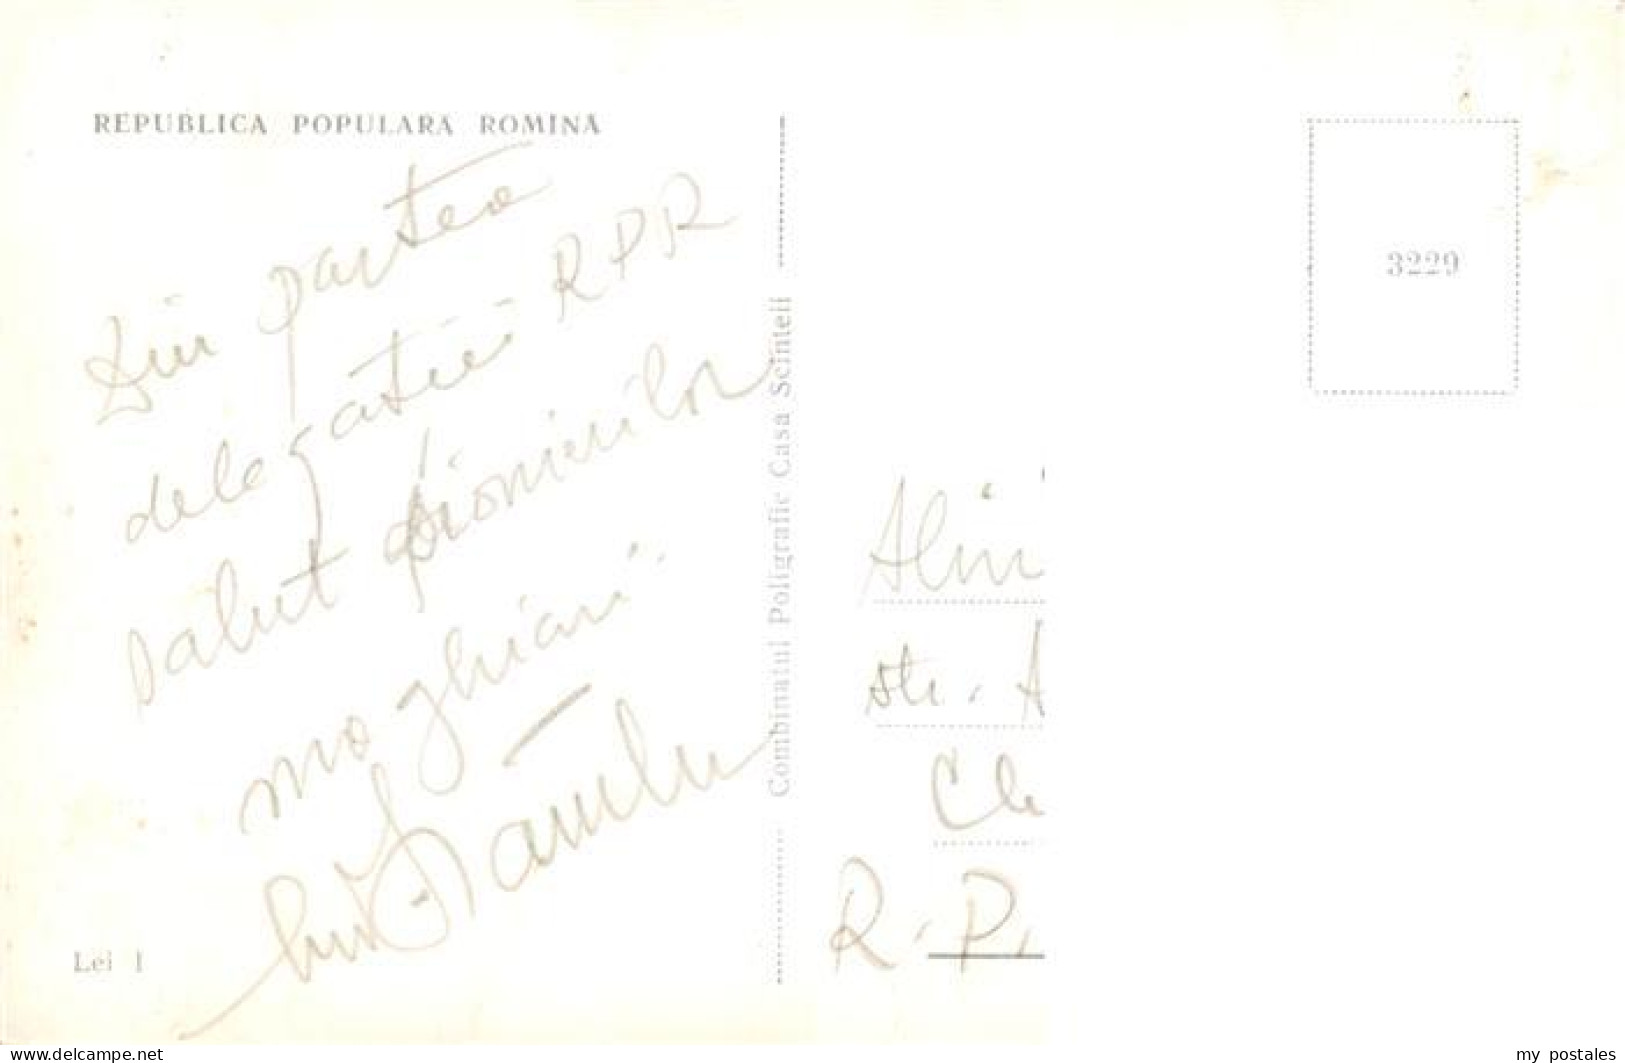 REPUBLICA POPULARA ROMINA
Din partea
delegatiei RPR
salut pionierilor
maghiari
Lei 1
Combinatul Poligrafic Casa Scinteii
3229
Alin
str. A
R. P.
my postales
www.delcampe.net